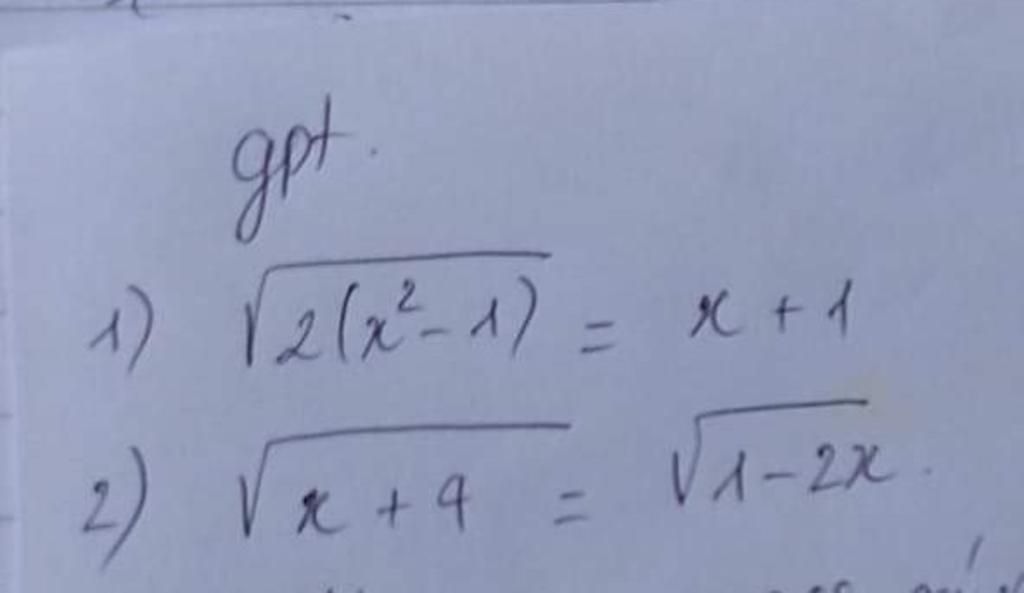 gpt.
1) √2(x²-1) = x + 1
2) √x + 4 = √1-2x.